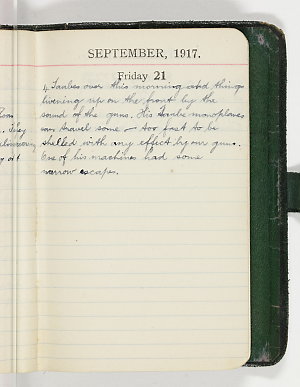 SEPTEMBER, 1917.
Friday 21
4 Taubes over this morning and things
livening up on the front by the
sound of the guns. His Taube monoplanes
can travel some — too fast to be
shelled with any effect by our guns.
One of his machines had some
narrow escapes.
They